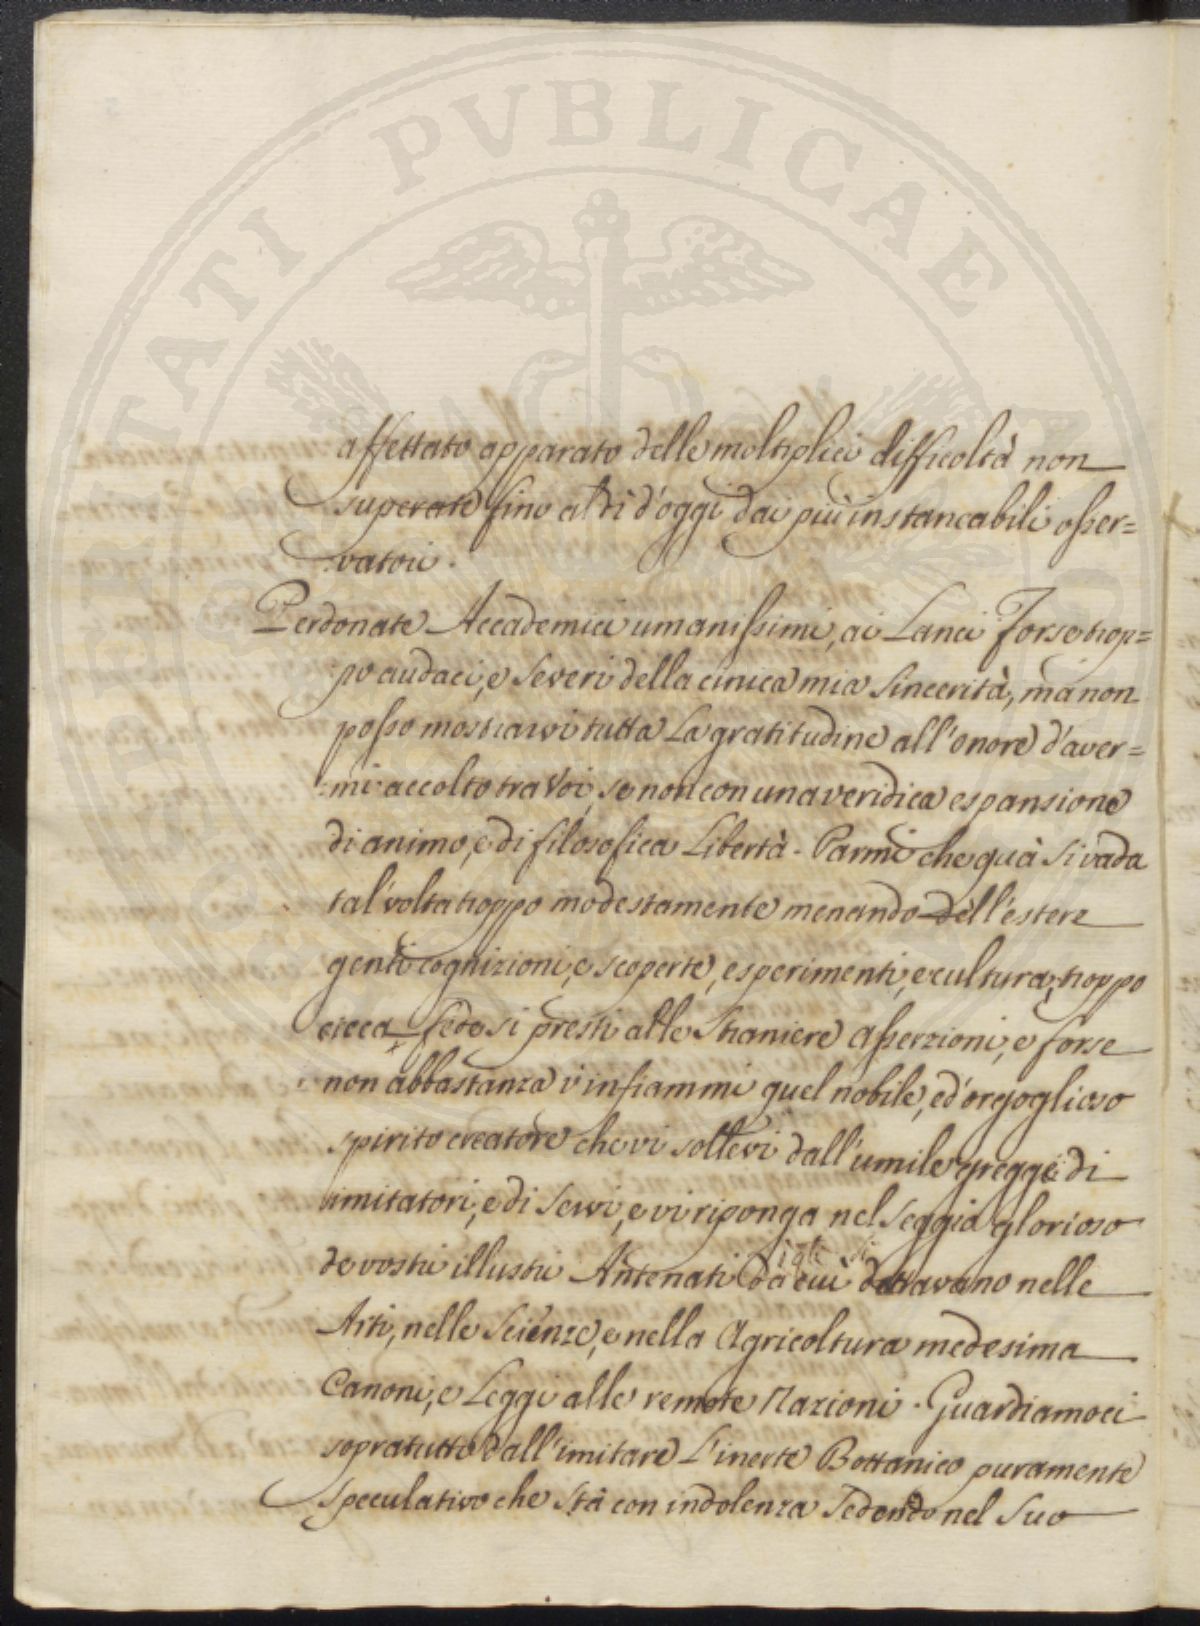 PROSPERITATI PVBLICAE AVGENDAE
affettato apparato delle moltiplici difficoltà non
superate fino al dì d'oggi dai più instancabili osser=
vatori.
Perdonate Accademici umanissimi, ai Lanci Forse trop=
po audaci, e Severi della cinica mia Sincerità, mà non
posso mostrarvi tutta La gratitudine all'onore d'aver=
mi accolto tra Voi, se non con una veridica espansione
di animo, e di filosofica Libertà. Parmi che quà Si vada
tal'volta troppo modestamente menando dell'estere
genti cognizioni, e scoperte, esperimenti, e cultura, troppo
cieca fede si presti alle Straniere asserzioni, e forse
non abbastanza v'infiammi quel nobile, ed'orgoglioso
spirito creatore che vi sollevi dall'umile gregge di
imitatori, e di Servi, e vi riponga nel Seggio glorioso
de vostri illustri Antenati da cui dettavano nelle
Arti, nelle Scienze, e nella Agricoltura medesima
Canoni, e Leggi alle remote Nazioni. Guardiamoci
sopratutto dall'imitare L'inerte Bottanico puramente
Speculativo che Stà con indolenza Sedendo nel Suo